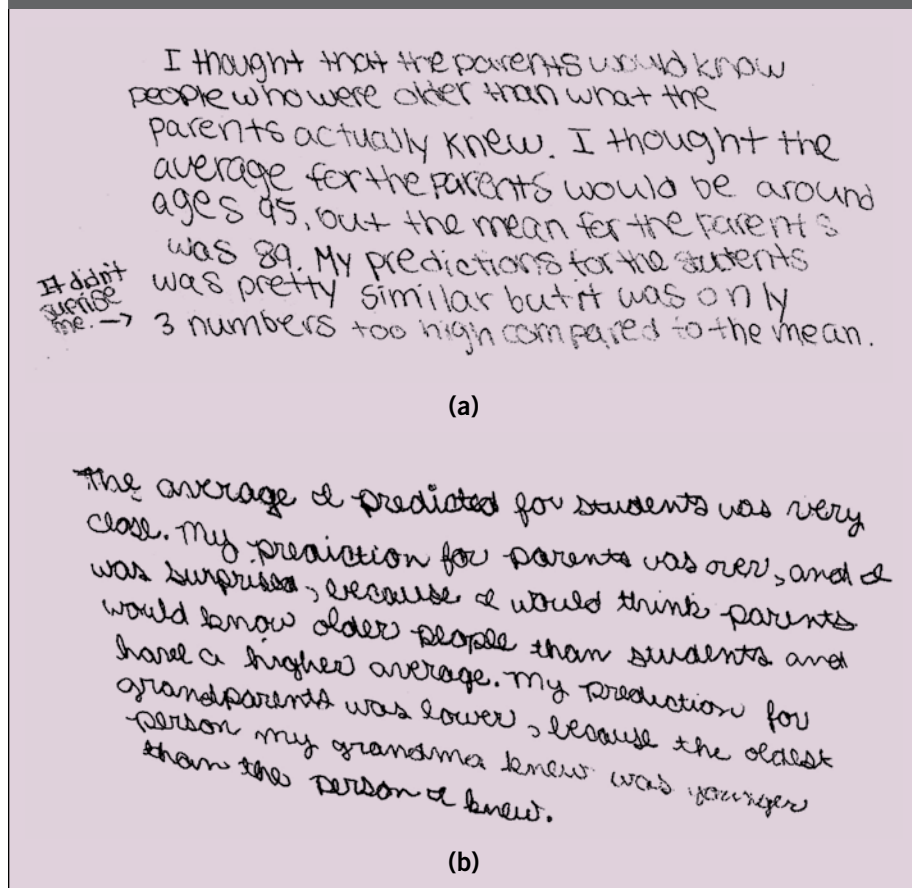 I thought that the parents would know
people who were older than what the
parents actually knew. I thought the
average for the parents would be around
ages 95, but the mean for the parents
was 89. My predictions for the students
It didn't
suprise
me. →
was pretty similar but it was only
3 numbers too high compared to the mean.
(a)
The average I predicted for students was very
close. My prediction for parents was over, and I
was surprised, because I would think parents
would know older people than students and
have a higher average. My prediction for
grandparents was lower, because the oldest
person my grandma knew was younger
than the person I knew.
(b)